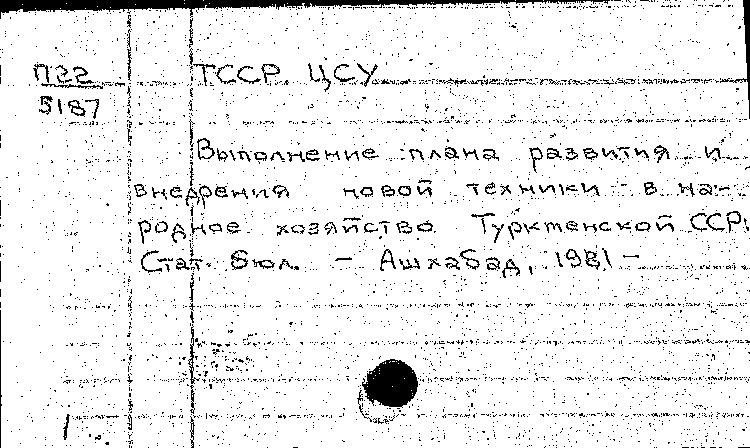 П22
5187
ТССР. ЦСУ
Выполнение плана развития и
внедрения новой техники в на-
родное хозяйство Туркменской ССР:
Стат. бюл. – Ашхабад, 1981 –
1